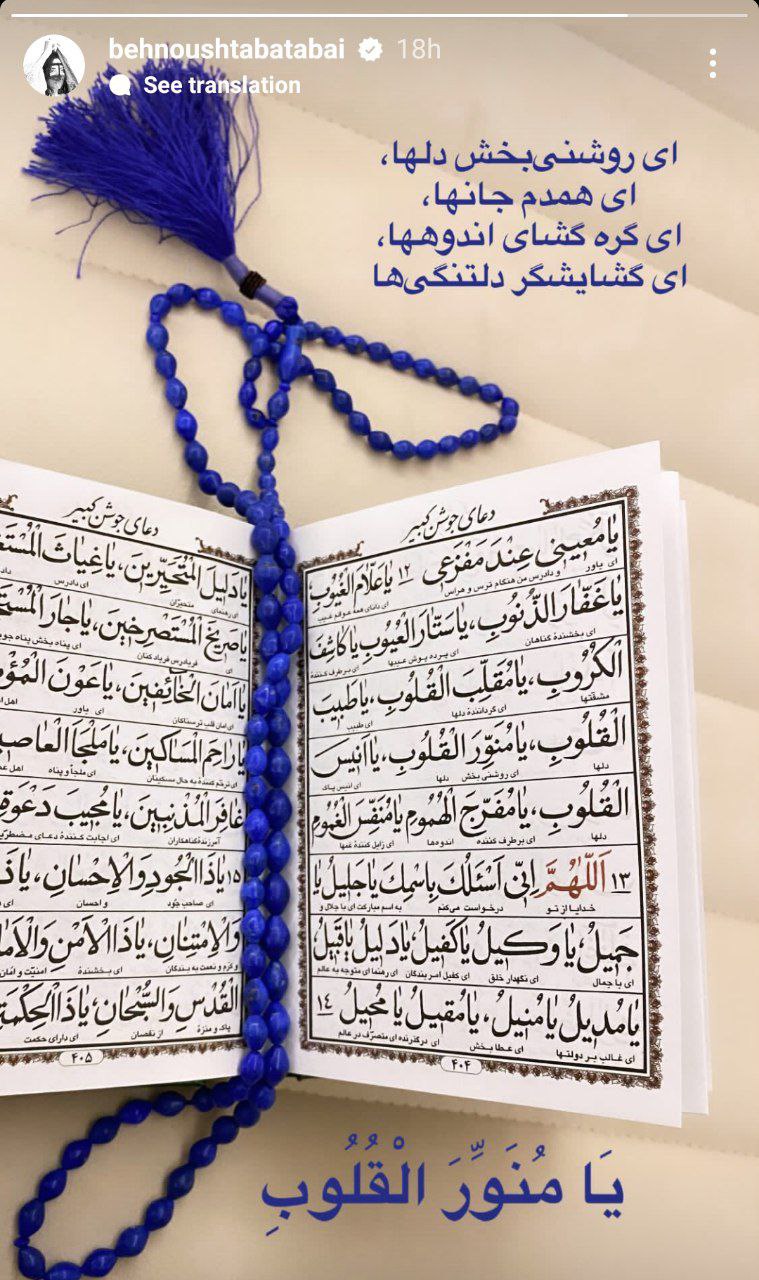 behnoushtabatabai 18h
See translation
ای روشنی‌بخش دلها،
ای همدم جانها،
ای گره گشای اندوهها،
ای گشایشگر دلتنگی‌ها
دعای جوشن کبیر
یا مُعینی عِنْدَ مَفْزَعی ۱۲ یا عَلّامَ الْغُیُوبِ
ای یاور و دادرس من هنگام ترس و هراس ای دانای همه عوالم غیب
یا غَفّارَ الذُّنُوبِ، یا سَتّارَ الْعُیُوبِ یا کاشِفَ
ای بخشنده گناهان ای پرده پوش عیبها ای برطرف کننده
الْکُرُوبِ، یا مُقَلِّبَ الْقُلُوبِ، یا طَبیبَ
مشقتها ای گرداننده دلها ای طبیب
الْقُلُوبِ، یا مُنَوِّرَ الْقُلُوبِ، یا اَنیسَ
دلها ای روشنی بخش دلها ای انیس پاک
الْقُلُوبِ، یا مُفَرِّجَ الْهُمُومِ یا مُنَفِّسَ الْغُمُومِ
دلها ای برطرف کننده اندوه‌ها ای زایل کننده غمها
۱۳ اَللّهُمَّ اِنّی اَسْئَلُکَ بِاسْمِکَ یا جَلیلُ یا
خدایا از تو درخواست می‌کنم به اسم مبارکت ای با جلال و
جَمیلُ، یا وَکیلُ یا کَفیلُ، یا دَلیلُ یا قَبیلُ
ای با جمال ای نگهدار خلق ای کفیل امر بندگان ای رهنما ای متوجه به عالم
یا مُدیلُ یا مُنیلُ، یا مُقیلُ یا مُحیلُ ۱۴
ای غالب بر دولتها ای عطا بخش ای درگذرنده ای متصرّف در عالم
۴۰۴
دعای جوشن کبیر
یا دَلیلَ الْمُتَحَیِّرینَ، یا غِیاثَ
ای رهنمای متحیّران ای دادرس
یا صَریخَ الْمُسْتَصْرِخینَ، یا جارَ
ای فریادرس فریاد کنان ای پناه بخش پناه
یا اَمانَ الْخائِفینَ، یا عَوْنَ
ای امان قلب ترسناکان ای یاور
یا راحِمَ الْمَساکینَ، یا مَلْجَاَ
ای ترحّم کننده به حال مسکینان ای ملجأ و پناه
غافِرَ الْمُذْنِبینَ، یا مُجیبَ دَعْوَةِ
آمرزنده گناهکاران ای اجابت کننده دعای
۱۵ یا ذَا الْجُودِ وَالْاِحْسانِ، یا ذَا
ای صاحب جُود و احسان
وَالْاِمْتِنانِ، یا ذَا الْاَمْنِ وَالْاَمانِ
نعمت به بندگان ای بخشندهٔ امنیّت و امان
الْقُدْسِ وَالسُّبْحانِ، یا ذَا الْحِکْمَةِ
پاک و منزه از نقصان ای دارای حکمت
۴۰۵
یَا مُنَوِّرَ الْقُلُوبِ